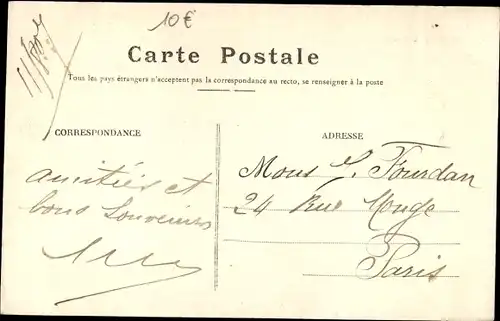 10€
Carte Postale
Tous les pays étrangers n'acceptent pas la correspondance au recto, se renseigner à la poste
CORRESPONDANCE
ADRESSE
amitiés et
bons souvenirs
Mons G. Fourdan
24 Rue Monge
Paris